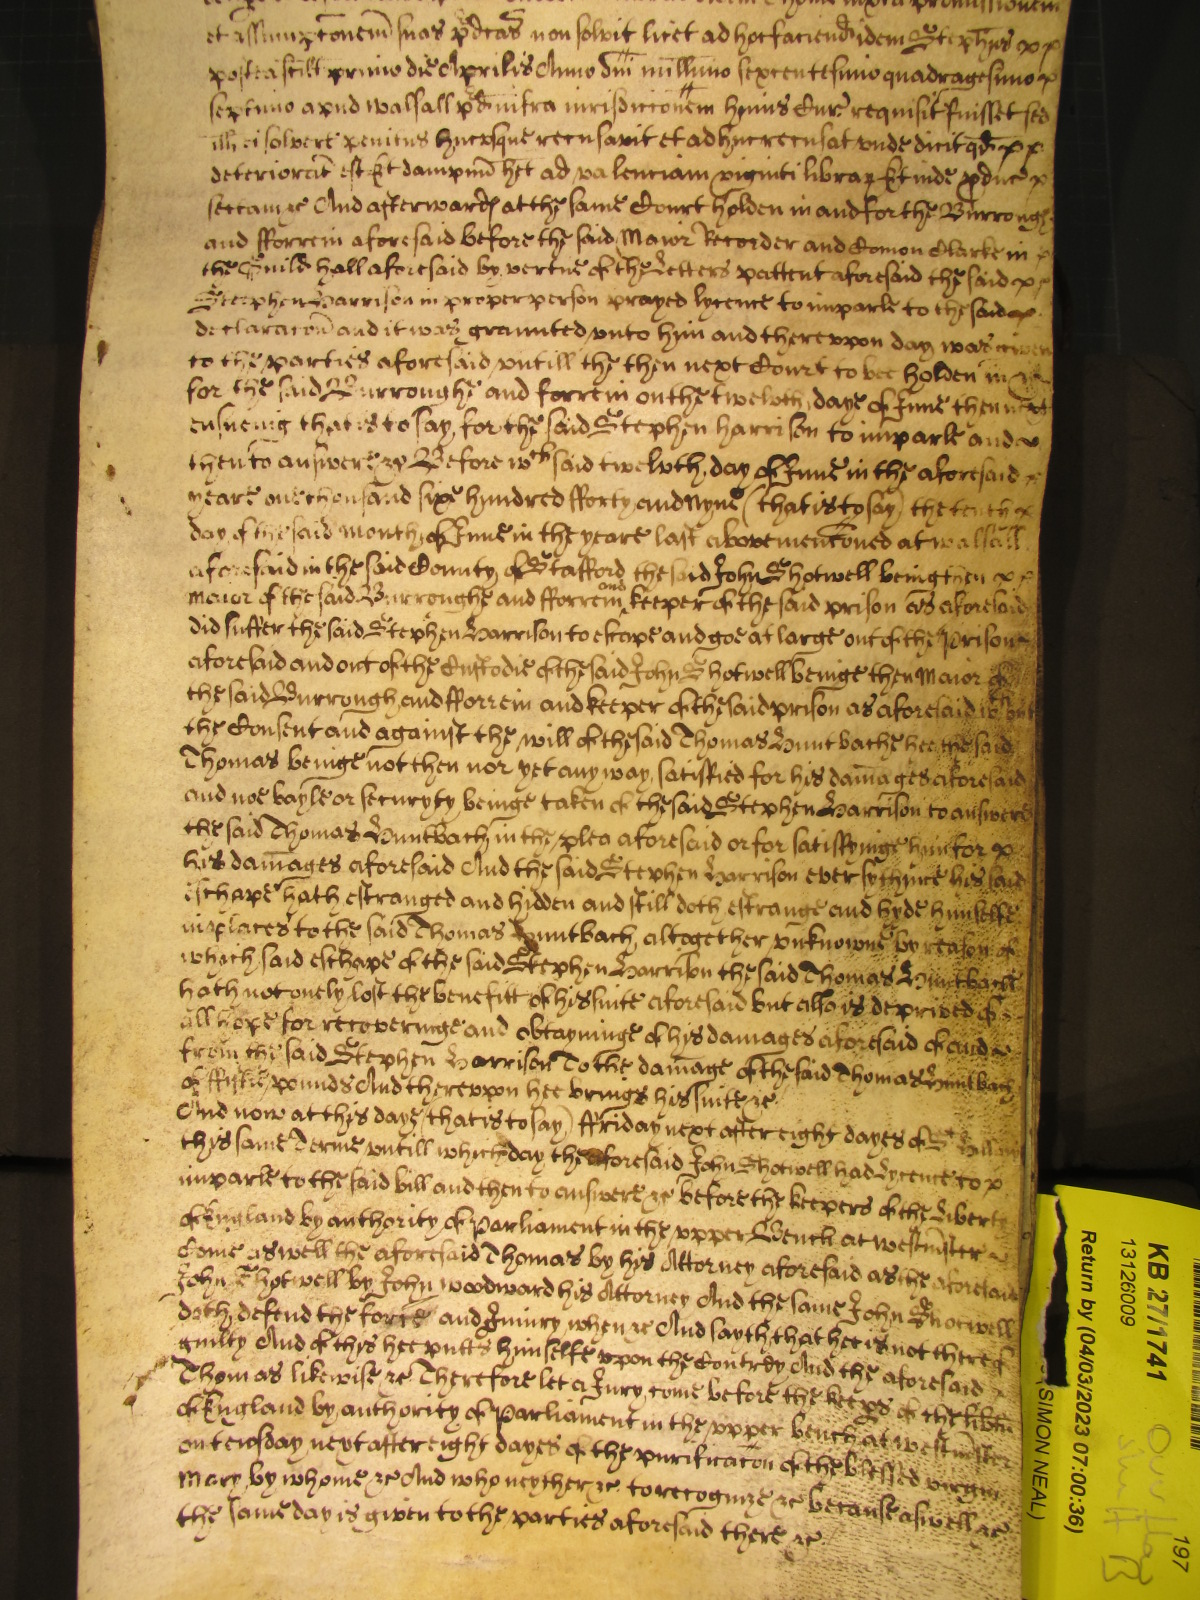 et assumpc̃onem̃ suas p̃dcas non solvit licet ad hoc faciend̃ idem Stephus
postea scilt primo die Aprilis Anno Dni millimo sexcentesimo quadragesimo
septimo apud Walsall p̃d infra iurisdicc̃onem huius Cur̃ requisit fuisset sed
ill ei solvere penitus hucusque recusavit et adhuc recusat unde dicit qd̃
deteriorat̃ est Et dampnũ het ad valenciam viginti librar Et inde p̃duc
sectam &c And afterward at the same Court holden in and for the Burrough
and fforrein aforesaid before the said Maior Recorder and Comon Clarke in
the Guild hall aforesaid by vertue of the Letters pattent aforesaid the said
Stephen Harrison in proper person prayed lycence to imparle to the said
declarac̃on and it was graunted vnto him and therevpon day was given
to the parties aforesaid vntill the then next Court to bee holden in
for the said Burroughe and forrein on the twelvth daye of June then next
ensueing that is to say for the said Stephen harrison to imparle and
then to answere &c Before wch said twelvth day of June in the aforesaid
yeare one thousand six hundred fforty and Nyne (that is to say) the tenth
day of the said month of June in the yeare last abovemenc̃oned at Walsall
aforesaid in the said County of Stafford the said John Shotwell being then
maior of the said Burroughe and fforrein and keeper of the said prison as aforesaid
did suffer the said Stephen Harrison to escape and goe at large out of the Prison
aforesaid and out of the Custodie of the said John Shotwell beinge then Maior of
the said Burrough and fforrein and keeper of the said prison as aforesaid without
the Consent and against the will of the said Thomas Huntbathe hee the said
Thomas beinge not then nor yet any way satisfied for his damages aforesaid
and noe bayle or securyty beinge taken of the said Stephen Harrison to answere
the said Thomas Huntbach in the plea aforesaid or for satisfyinge him for
his damages aforesaid And the said Stephen Harrison ever sythence his said
eschape hath estranged and hidden and still doth estrange and hyde himselfe
in places to the said Thomas Huntbach altogether vnknowne by reason of
which said eschape of the said Stephen Harrison the said Thomas Huntbach
hath not onely lost the benefitt of his suite aforesaid but also is deprived of
all hope for recoveringe and obtayninge of his damages aforesaid of and
from the said Stephen Harrison To the damage of the said Thomas Huntbach
of fiftie pounds And therevpon hee brings his suite &c
And now at this daye (that is to say) ffriday next after eight dayes of St Hillary
this same Terme vntill which day the aforesaid John Shotwell had Lycence to
imparle to the said bill and then to answere &c before the keepers of the Liberty
of England by authority of Parliament in the vpper Bench at Westm̃ster
Come aswell the aforesaid Thomas by his Attorney aforesaid as the aforesaid
John Shotwell by John Woodward his Attorney And the same John Shotwell
doth defend the force and Iniury when &c And sayth that hee is not thereof
guilty And of this hee putts himselfe vpon the Contrey And the aforesaid
Thomas likewise &c Therefore let a Jury come before the keeps of the lib̃tie
of England by authority of Parliament in the vpper bench at Westm̃ster
on tewsday next after eight dayes of the purificac̃on of the blessed virgin
Mary by whome &c And who neyther &c to recognize &c because aswell &c
the same day is given to the parties aforesaid there &c
KB 27/1741
13126009
Return by (04/03/2023 07:00:36)
SIMON NEAL)
197